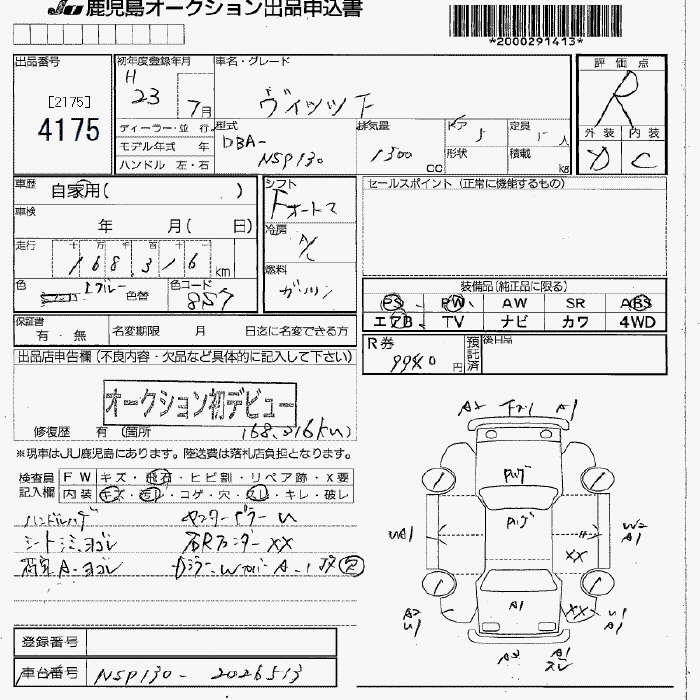 JU 鹿児島オークション出品申込書
*2000291413*
出品番号
[2175]
4175
初年度登録年月
H
23
7月
車名・グレード
ヴィッツ F
評価点
R
外装 内装
D C
ディーラー・並 行
モデル年式 年
ハンドル 左・右
型式
DBA-
NSP130
排気量
1300
cc
ドア 5
形状
定員 人
積載 kg
車歴
自家用( )
車検
年 月( 日)
走行
十 万 千 百 十
168,316
km
シフト
Fオートマ
冷房
A/C
燃料
ガソリン
セールスポイント (正常に機能するもの)
色
色替
色コード
装備品 (純正品に限る)
PS PW AW SR ABS
エアB TV ナビ カワ 4WD
保証書
有・無
名変期限 月 日迄に名変できる方
R券
9940
円
預託済
後日品
出品店申告欄 (不良内容・欠品など具体的に記入して下さい)
オークション初デビュー
修復歴 有 (箇所
168,316km
※現車はJU鹿児島にあります。陸送費は落札店負担となります。
検査員
記入欄
FW キズ・飛石・ヒビ割・リペア跡・X要
内装 キズ・汚れ・コゲ・穴・スレ・キレ・破レ
ハンドルハゲ
シート シミ、ヨゴレ
XX
A-ヨゴレ
登録番号
車台番号 NSP130- 2026513
A2
A1
PWゲ
PWゲ
UA1
XX
W2
A1
A1
XX
A2
U1
U1
A1
A2
A1
スレ